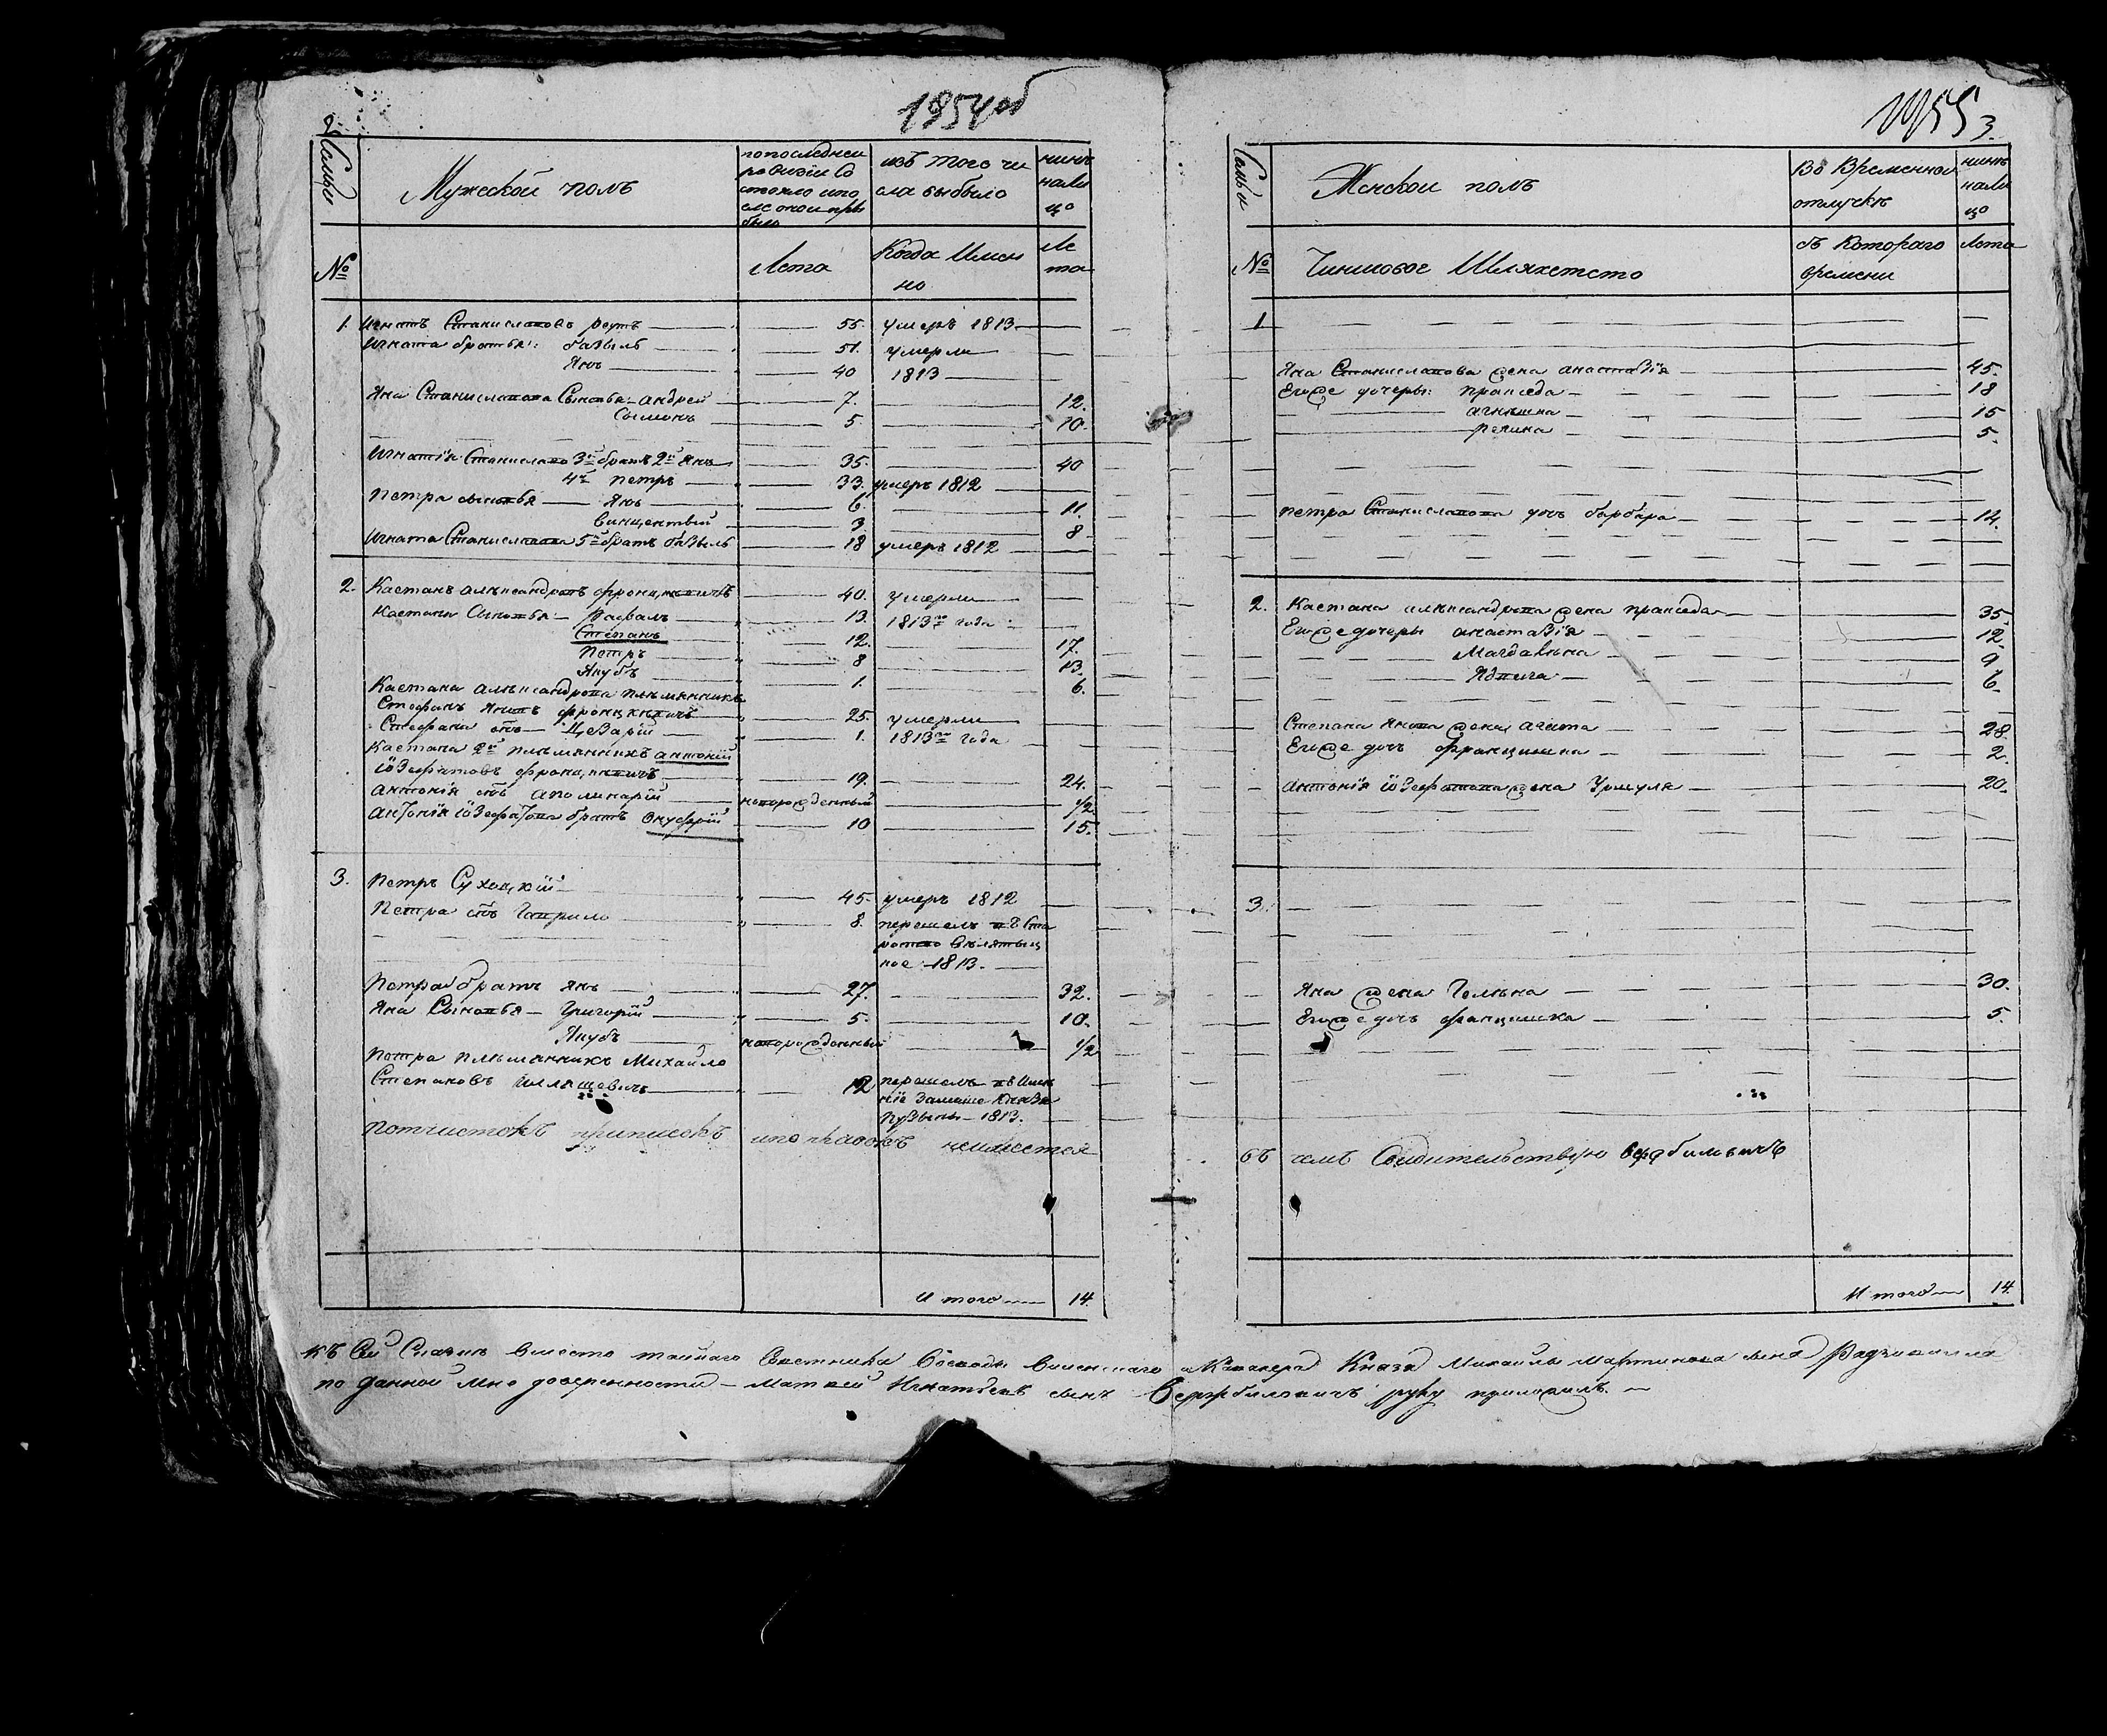 1954об
Семьи
Мужеской полъ
по последней ревизіи состояло и после оной прибыло
изъ того числа выбыло
ныне на лицо
№
Лета
Когда Именно
Лета
1. Игнатъ Станиславовъ Реутъ 55. умеръ 1813
Игната братья: базыль 51. умерли
Янъ 40 1813
Яна Станиславова Сыновья: андрей 7. 12.
Сымонъ 5. 10.
Игнатія Станиславова 3й братъ 2й Янъ 35. 40
4й петръ 33. умеръ 1812
Петра сыновья Янъ 6. 11.
Винцентый 3. 8
Игната Станиславова 5й братъ базыль 18 умеръ 1812
2. Каетанъ александровъ 40. умерли
Каетана Сыновья Рафаль 13. 1813го года
Степанъ 12. 17.
Петръ 8 13.
Якубъ 1. 6.
Каетана александрова племянникъ
Стефанъ Яновъ 25. умерли
Стефана сынъ Цезарій 1. 1813го года
Каетана 2й племянникъ антоній
іозефатовъ 19. 24.
антонія сынъ аполинарій новорожденный 1/2
антонія іозефатова братъ Онуфрій 10 15.
3. Петръ Сухоцкій 45. умеръ 1812
Петра сынъ Гаврило 8. перешелъ въ Ста
роство
ное 1813.
Петра братъ Янъ 27. 32.
Яна Сыновья Григорій 5. 10.
Якубъ новорожденный 1/2
Петра племянникъ Михайло
Степановъ 12 перешелъ въ Име
ніе Князя
Пузыны 1813.
почистокъ приписокъ и поправокъ неимеется
Итого 14.
1955
3.
Семьи
Женской полъ
Во Временной отлучке
ныне на лицо
№
Чиншовое Шляхетство
Съ Котораго времени
Лета
1
Яна Станиславова жена анастазія 45.
Егоже дочеры: пракседа 18
агнешка 15
регина 5.
петра Станиславова дочь барбара 14.
2. Каетана александрова жена пракседа 35.
Егоже дочеры анастазія 12.
Магдалена 9
Ядвига 6.
Степана Янова жена агата 28.
Егоже дочь францишка 2.
антонія іозефатова жена Уршуля 20.
3.
Яна жена Гелена 30.
Егоже дочь францишка 5.
въ чемъ Свидетельствую Вержбиловичъ
Итого 14.
Къ Сей Сказке вместо тайнаго Советника и Кавалера Князя Михайлы Мартинова сына Радзивилла
по данной мне доверенности Матвей Игнатьевъ сынъ Вержбиловичъ руку приложилъ.